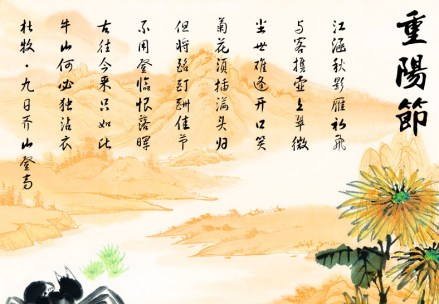 重陽節
江涵秋影雁初飛
与客携壶上翠微
尘世难逢开口笑
菊花须插满头归
但将酩酊酬佳节
不用登临恨落晖
古往今来只如此
牛山何必独沾衣
杜牧·九日齐山登高